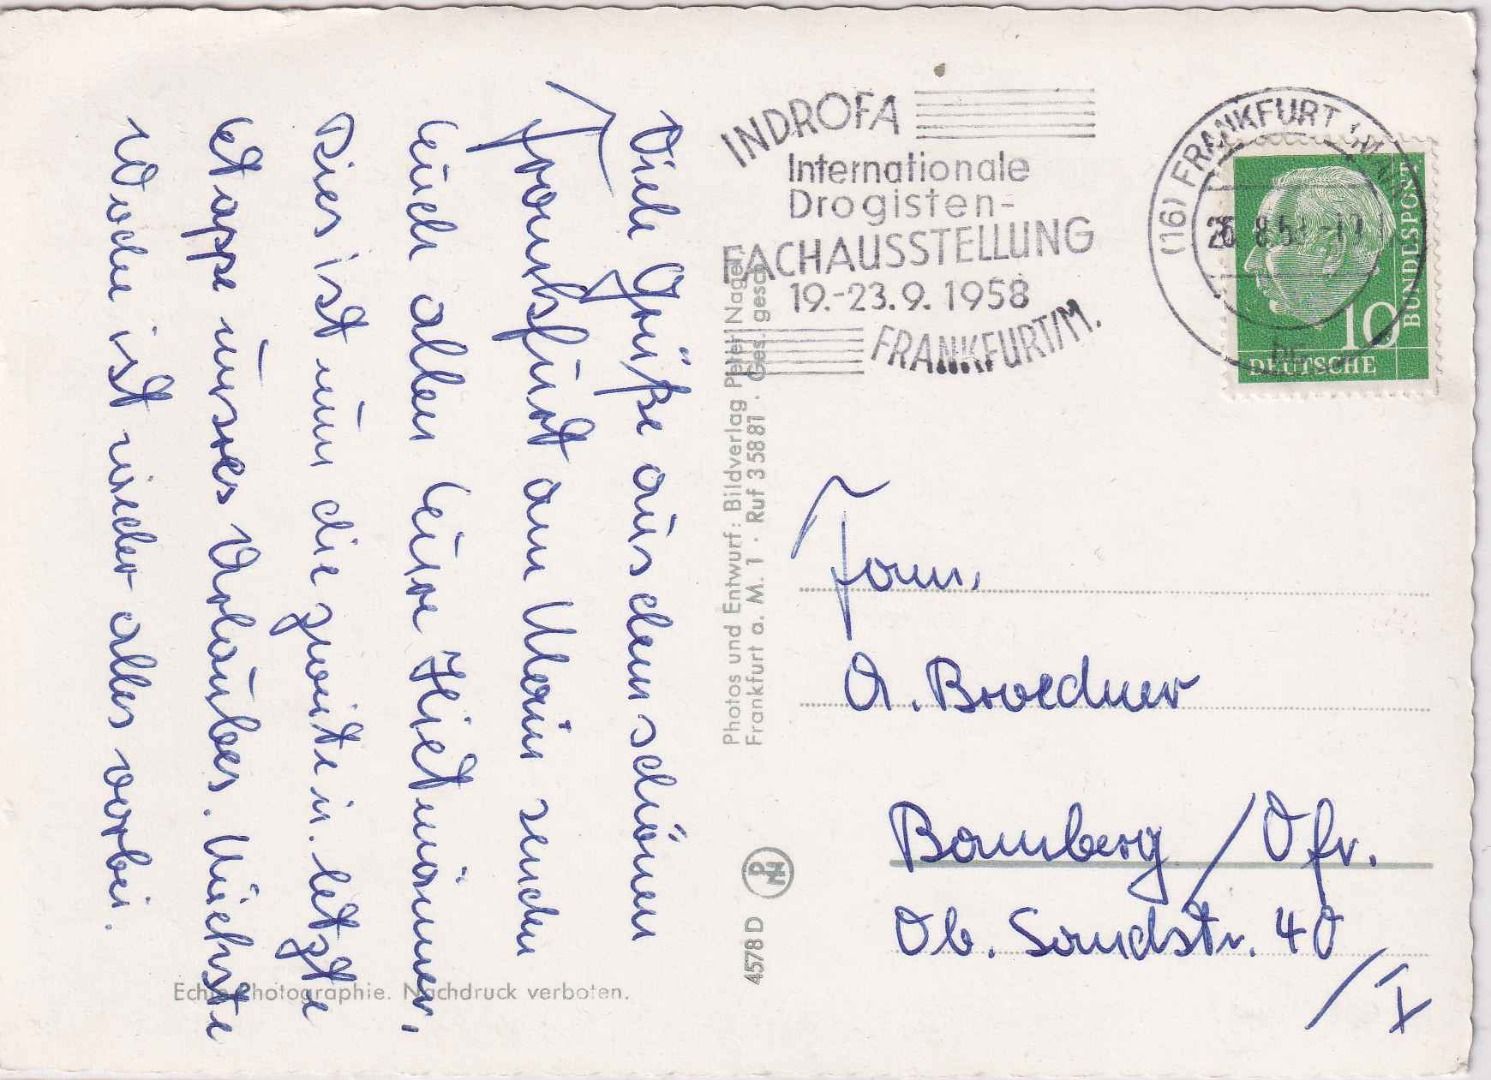 Viele Grüße aus dem schönen
Frankfurt am Main senden
Euch allen Eure Hietmänner,
Dies ist nun die zweite u. letzte
Etappe unsres Urlaubes. Nächste
Woche ist wieder alles vorbei.
INDROFA
Internationale
Drogisten-
FACHAUSSTELLUNG
19.-23.9.1958
FRANKFURT/M.
(16) FRANKFURT (MAIN
26.8.58
10
BUNDESPOST
DEUTSCHE
Fam.
A. Broedner
Bamberg / Ofr.
Ob. Sandstr. 40
/ I
Photos und Entwurf: Bildverlag Peter Nagel
Frankfurt a. M. 1 · Ruf 35881 · Ges. gesch.
4578 D
Echte Photographie. Nachdruck verboten.